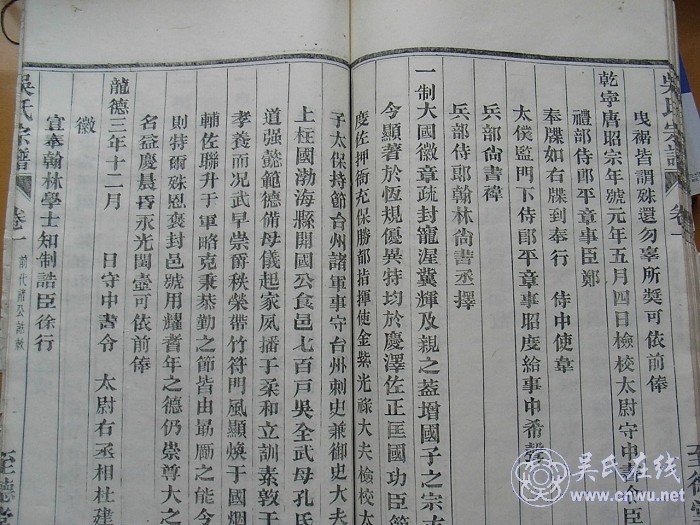 吳氏宗譜
卷一
至德堂
曳裾皆謂殊還勿辜所奬可依前俸
乾寧唐昭宗年號元年五月四日檢校太尉守中書令臣
禮部侍郎平章事臣鄭
奉牒如右牒到奉行 侍中使章
太僕監門下侍郎平章事昭度給事中希聲
兵部尚書褘
兵部侍郎翰林尚書丞擇
一制大國徽章疏封寵渥冀輝及親之蓋增國子之宗
今顯著於恆規優異特均於慶澤佐正匡國功臣節
度佐押衙充保勝都指揮使金紫光祿大夫檢校太
子太保持節台州諸軍事守台州刺史兼御史大夫
上柱國渤海縣開國公食邑七百戸吳全武母孔氏
道强懿範德備母儀起家夙播于柔和立訓素敦于
孝養而况武早崇爵秩榮帶竹符門風顯煥于國烟
輔佐聯升于軍略克秉恭勤之節皆由勗勵之能今
則特䘏殊恩褒封邑號用耀耆年之德仍崇尊大之
名益慶晨昏永光閫壼可依前俸
龍德三年十二月 日守中書令 太尉右丞相杜建
徽
宣奉翰林學士知制誥臣徐行
吳氏宗譜
卷一
前代諸公誥敕
至德堂
吴氏在线
www.cnwu.net